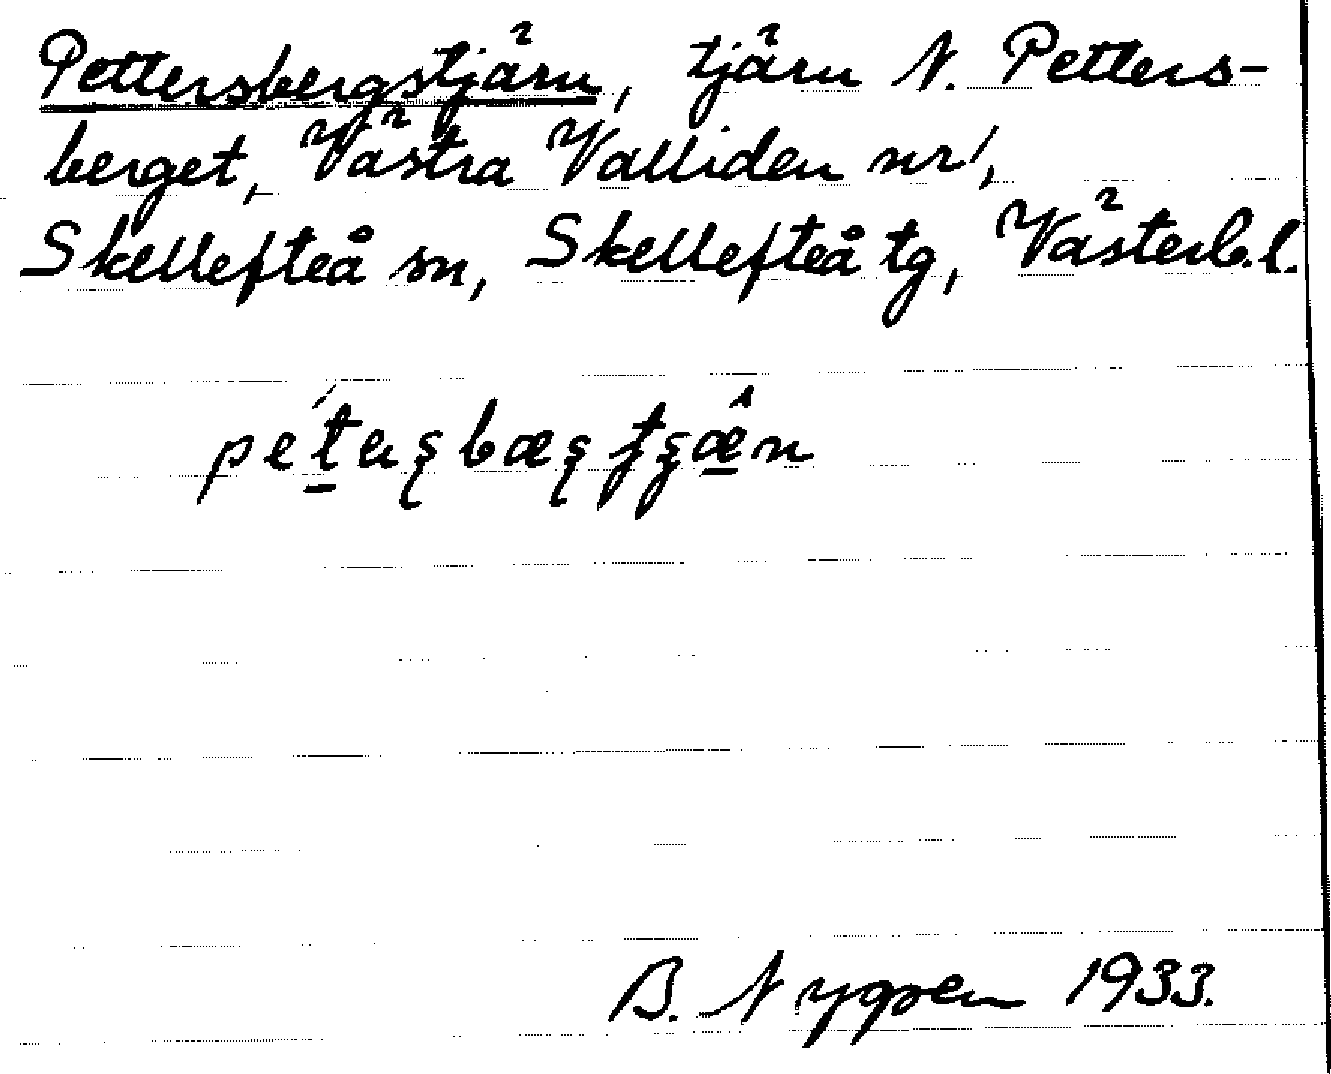 Pettersbergstjärn, tjärn N. Petters-
berget, Västra Valliden nr 1,
Skellefteå sn, Skellefteå tg, Västerb. l.
B. Nygren 1933.